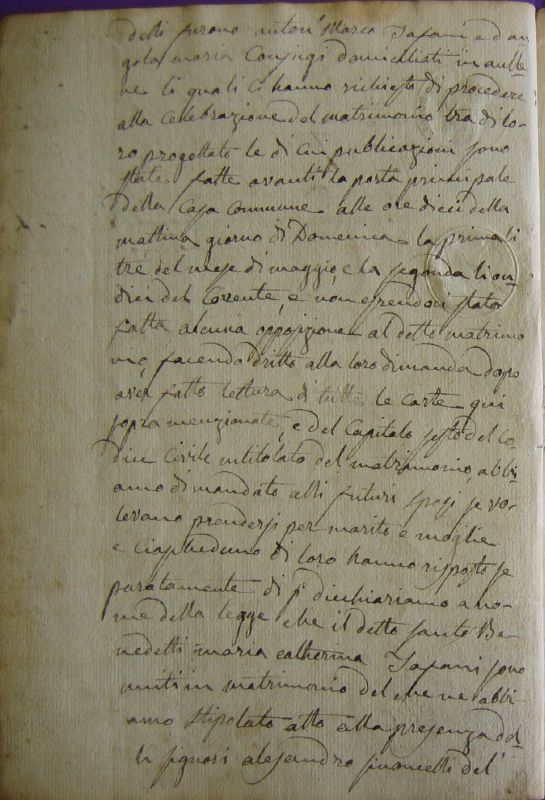 delli furono Anton' Marco Tafani ed an
gela maria Conjugi domiciliati in aulle
ne li quali ci hanno richiesto di procedere
alla Celebrazione del matrimonio tra di lo-
ro progettato le di cui publicazioni sono
state fatte avanti la porta principale
della Casa Commune alle ore dieci della
mattina giorno di Domenica la prima li
tre del mese di maggio, e la segonda li on-
dici del Corrente, e non essendoci stato
fatta alcuna opposizione al detto matrimo
nio, facendo dritto alla loro dimanda dopo
aver fatto lettura di tutte le carte qui
sopra menzionate, e del Capitolo sesto del co
dice Civile intitolato del matrimonio, abbi-
amo dimandato alli futuri sposi se vo-
levano prendersi per marito e moglie
e Ciascheduno di loro hanno risposto se
paratamente di si dicchiariamo a no-
me della legge che il detto Santo Be-
nedetti maria catherina Tafani sono
uniti in matrimonio del che ne abbi-
amo stipolato atto alla presenza del-
li signori alesandro del'